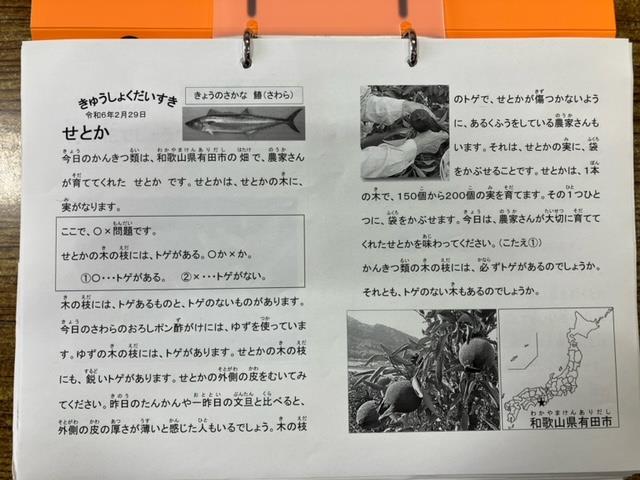 きゅうしょくだいすき
令和6年2月29日
せとか
きょうのさかな 鰆（さわら）
今日のかんきつ類は、和歌山県有田市の 畑で、農家さん
が育ててくれた せとか です。せとかは、せとかの木に、
実がなります。
ここで、○×問題です。
せとかの木の枝には、トゲがある。○か×か。
①○･･･トゲがある。 ②×･･･トゲがない。
木の枝には、トゲがあるものと、トゲのないものがあります。
今日のさわらのおろしポン酢がけには、ゆずを使っていま
す。ゆずの木の枝には、トゲがあります。せとかの木の枝
にも、鋭いトゲがあります。せとかの外側の皮をむいてみ
てください。昨日のたんかんや一昨日の文旦と比べると、
外側の皮の厚さが薄いと感じた人もいるでしょう。木の枝
のトゲで、せとかが傷つかないよう
に、あるくふうをしている農家さんも
います。それは、せとかの実に、袋
をかぶせることです。せとかは、1本
の木で、150個から200個の実を育てます。その1つひと
つに、袋をかぶせます。今日は、農家さんが大切に育てて
くれたせとかを味わってください。（こたえ①）
かんきつ類の木の枝には、必ずトゲがあるのでしょうか。
それとも、トゲのない木もあるのでしょうか。
わかやまけんありだし
和歌山県有田市